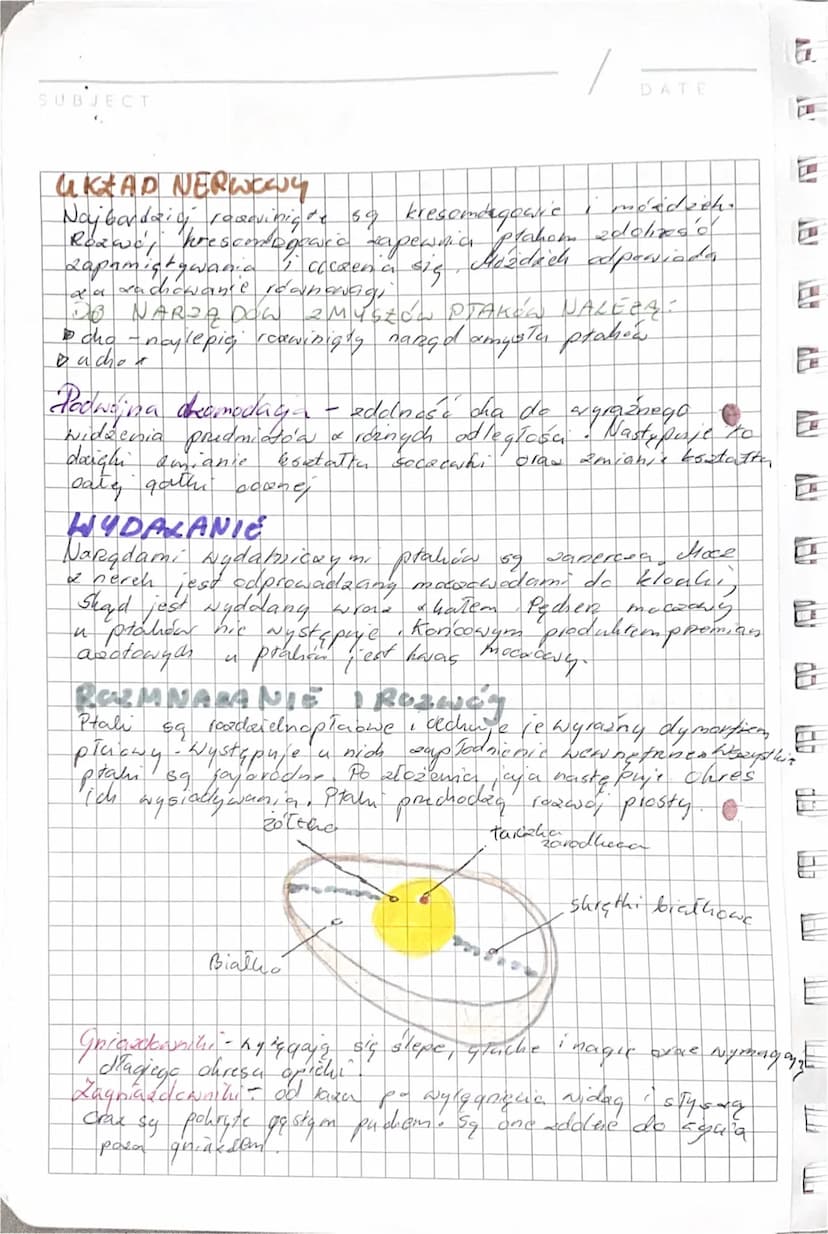 SUBJECT
DATE
UKŁAD NERWOWY
Najbardziej rozwinięte są kresomógowie i móżdżek.
Rozwój kresomózgowia zapewnia ptakom zdolność
zapamiętywania i uczenia się. Móżdżek odpowiada
za zachowanie równowagi
DO NARZĄDÓW ZMYSŁÓW PTAKÓW NALEŻĄ:
oko - najlepiej rozwinięty narząd zmysłu ptaków
ucho
Podwójna akomodacja - zdolność oka do wyraźnego
widzenia przedmiotów z różnych odległości. Następuje to
dzięki zmianie kształtu soczewki oraz zmianie kształtu
całej gałki ocznej
WYDALANIE
Narządami wydalniczymi ptaków są nerki. Mocz
z nerek jest odprowadzany moczowodami do kloaki,
skąd jest wydalany wraz z kałem. Pęcherz moczowy
u ptaków nie występuje. Końcowym produktem przemian
azotowych u ptaków jest kwas moczowy.
ROZMNAŻANIE I ROZWÓJ
Ptaki są rozdzielnopłciowe i cechuje je wyraźny dymorfizm
płciowy. Występuje u nich zapłodnienie wewnętrzne. Wszystkie
ptaki są jajorodne. Po złożeniu jaja następuje okres
ich wysiadywania. Ptaki przechodzą rozwój prosty.
żółtko
tarczka
zarodkowa
skrętki białkowe
Białko
Gniazdowniki - wylęgają się ślepe, głuche i nagie oraz wymagają
długiego okresu opieki.
Zagniazdowniki - od razu po wylęgnięciu widzą i słyszą
oraz są pokryte gęstym puchem. Są one zdolne do życia
poza gniazdem.